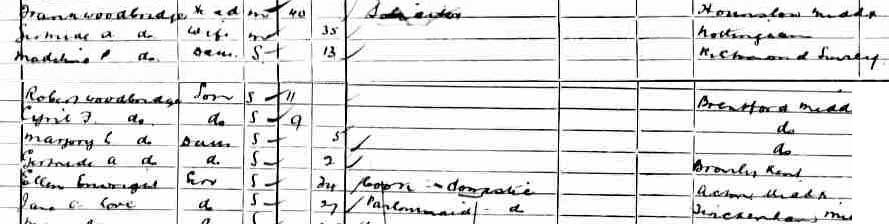 Frank Woodbridge Head M 40 Solicitor Hounslow Midd
Gertrude A do Wife M 35 Nottingham
Madeline P do Daur S 13 Richmond Surrey
Robert Woodbridge Son S 11 Brentford Midd
Cyril F. do do S 9 do
Marjory C do Daur S 5 do
Gertrude A do do S 2 Bromley Kent
Ellen Enwright Serv S 24 Cook - domestic Acton Midd
Jane C. Love do S 27 Parlourmaid d Twickenham Mi